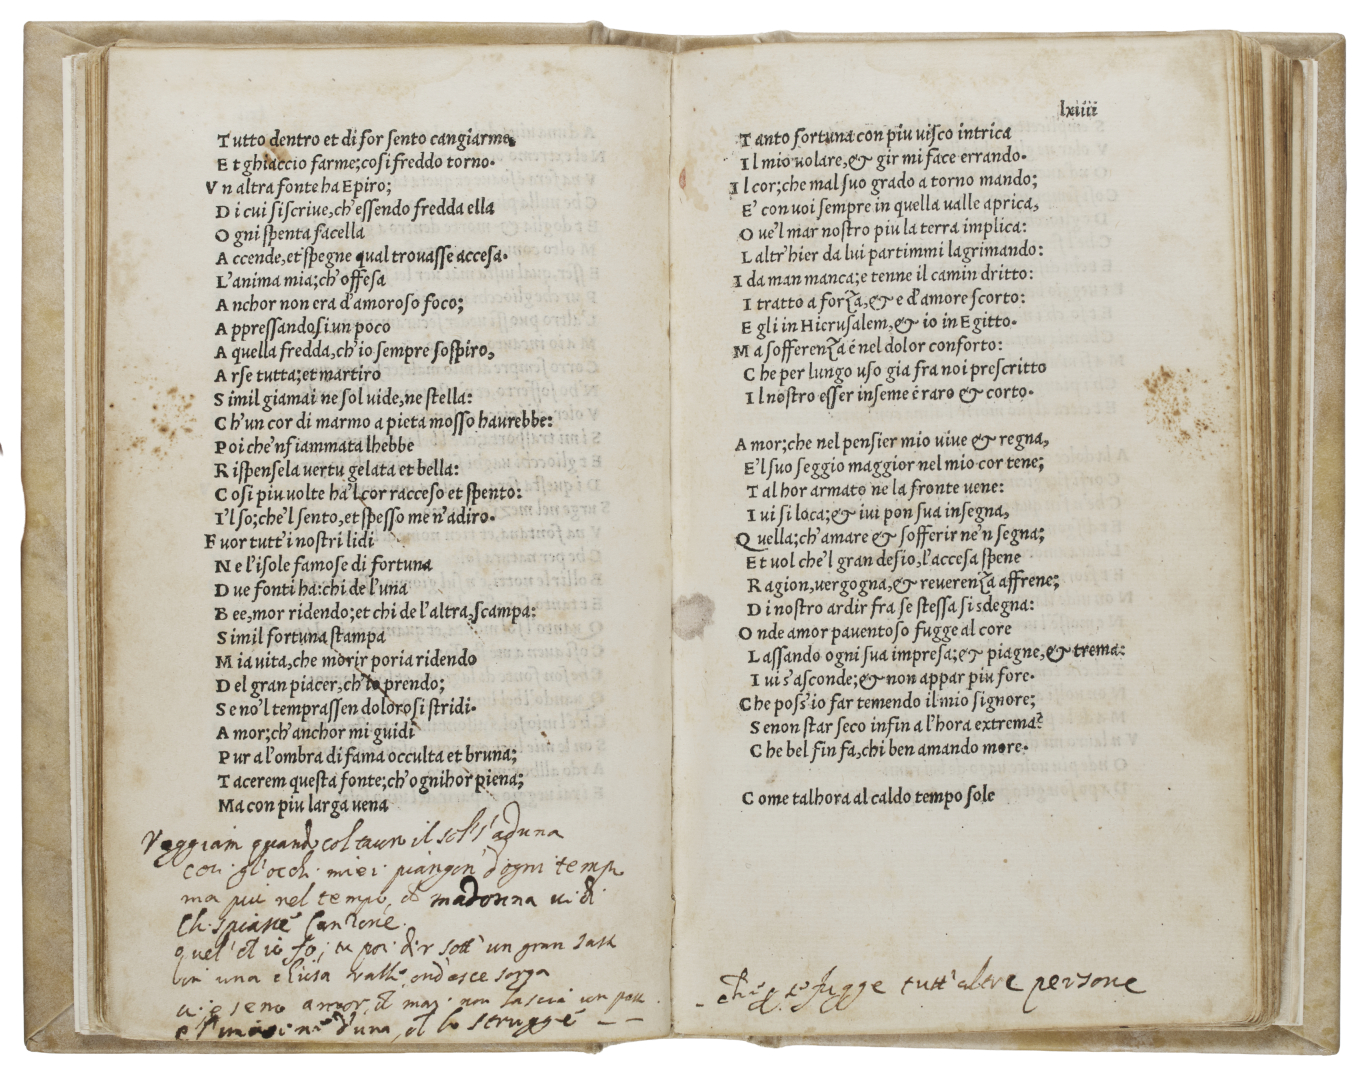 Tutto dentro et di for sento cangiarme,
Et ghiaccio farme; cosi freddo torno.
Vn altra fonte ha Epiro;
Di cui si scriue, ch'essendo fredda ella
Ogni spenta facella
Accende, et spegne qual trouasse accesa.
L'anima mia; ch'offesa
Anchor non era d'amoroso foco;
Appressandosi un poco
A quella fredda, ch'io sempre sospiro,
Arse tutta; et martiro
Simil giamai ne sol uide, ne stella:
Ch'un cor di marmo a pieta mosso haurebbe:
Poi che'nfiammata lhebbe
Rispensela uertu gelata et bella:
Cosi piu uolte ha'l cor racceso et spento:
I'l so; che'l sento, et spesso me n'adiro.
Fuor tutt'i nostri lidi
Ne l'isole famose di fortuna
Due fonti ha: chi de l'una
Bee, mor ridendo; et chi de l'altra, scampa:
Simil fortuna stampa
Mia uita, che morir poria ridendo
Del gran piacer, ch'io prendo;
Se no'l temprassen dolorosi stridi.
Amor; ch'anchor mi guidi
Pur a l'ombra di fama occulta et bruna;
Tacerem questa fonte; ch'ognihor piena;
Ma con piu larga uena
Veggiam quando col tauro il sol s'aduna
cosi gl'occhi miei piangon d'ogni tempo
ma piu nel tempo, ch madonna uidi
Chi spiasse Canzone
quel ch'io fo; tu poi dir sott' un gran sasso
in una chiusa ualle, ond'esce sorga
si sta; ne chi lo scorga
u'e seno amor, ch mai non lascia un passo
e l'imagine d'una, ch lo strugge
lxiiii
Tanto fortuna con piu uisco intrica
Il mio uolare, & gir mi face errando.
Il cor; che mal suo grado a torno mando;
E' con uoi sempre in quella ualle aprica,
Oue'l mar nostro piu la terra implica:
L altr'hier da lui partimmi lagrimando:
I da man manca; e tenne il camin dritto:
I tratto a forza, & e d'amore scorto:
Egli in Hierusalem, & io in Egitto.
Ma sofferenza é nel dolor conforto:
Che per lungo uso gia fra noi prescritto
Il nostro esser inseme é raro & corto.
Amor; che nel pensier mio uiue & regna,
E'l suo seggio maggior nel mio cor tene;
Talhor armato ne la fronte uene:
Iui si loca; & iui pon sua insegna,
Quella; ch'amare & sofferir ne'n segna;
Et uol che'l gran desio, l'accesa spene
Ragion, uergogna, & reuerenza affrene;
Di nostro ardir fra se stessa si sdegna:
Onde amor pauentoso fugge al core
Lassando ogni sua impresa; & piagne, & trema:
Iui s'asconde; & non appar piu fore.
Che poss'io far temendo il mio signore;
Senon star seco infin a l'hora extrema?
Che bel fin fa, chi ben amando more.
Come talhora al caldo tempo sole
fugge tutt'altre persone